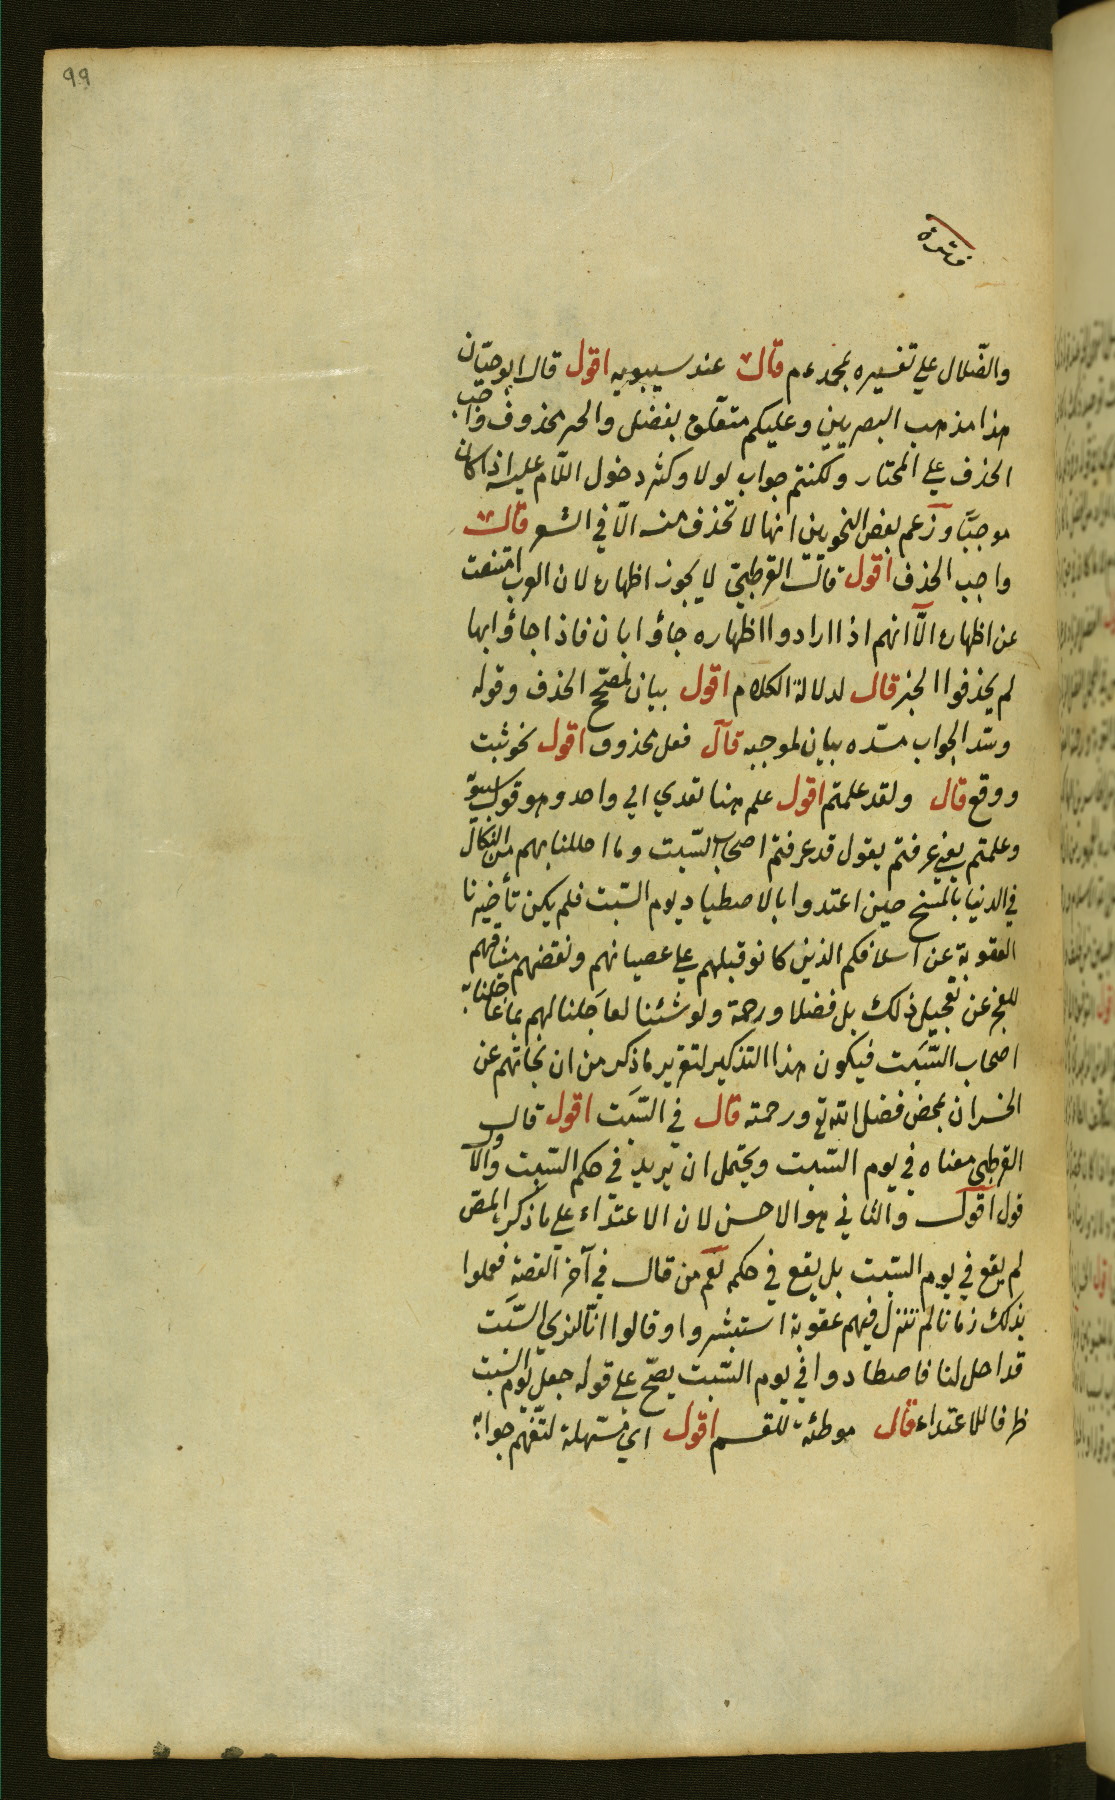 ٩٩
والضلال علي تفسيره بمحمد عم قال عند سيبويه اقول قال ابو حيان
هذا مذهب البصريين وعليكم متعلق بفضل والخبر محذوف واجب
الحذف علي المختار ولكنتم جواب لولا وكثر دخول اللام عليه اذا كان
موجبًا وزعم بعض النحويين انها لا تحذف منه الّا في الشعر قال
واجب الحذف اقول قالت القرطبيّ لا يجوز اظهاره لان العرب امتنعت
عن اظهاره الّا انهم اذا ارادوا اظهاره جاؤا بان فاذا جاؤا بها
لم يحذفوا الخبر قال لدلالة الكلام اقول بيان لمصحّح الحذف وقوله
وسد الجواب مسّده بيان لموجبه قال فعل محذوف اقول نحو ثبت
ووقع قال ولقد علمتم اقول علم هنا تعدي الي واحد وهو قول
وعلمتم يعني عرفتم يقول قد عرفتم اصحاب السّبت وما احللنا بهم من النكال
في الدنيا بالمسخ حين اعتدوا بالاصطياد يوم السّبت فلم يكن تأخيرنا
العقوبة عن اسلافكم الذين كانو قبلهم علي عصيانهم ونقضهم ميثاقهم
للعجز عن تعجيل ذلك بل فضلا ورحمة ولو شئنا لعاجلنا لهم بما عاجلنا به
اصحاب السّبت فيكون هذا التذكير لتقرير ما ذكر من ان نجاتهم عن
الخسران بمحض فضل الله تع ورحمته قال في السّبت اقول قال
القرطبي معناه في يوم السّبت ويحتمل ان يريد في حكم السّبت والاول
قول اقول والثاني هو الاحسن لان الاعتداء علي ما ذكر المص
لم يقع في يوم السّبت بل يقع في حكمه نعم من قال في آخر القصة فعملوا
بذلك زمانا لم تتنزل فيهم عقوبة استبشروا وقالوا انّا لنري السّبت
قد احل لنا فاصطادوا في يوم السّبت يصحّ علي قوله جعل يوم السّبت
ظرفا للاعتداء قال موطئة للقسم اقول اي مسهلة لتفهم جوابه